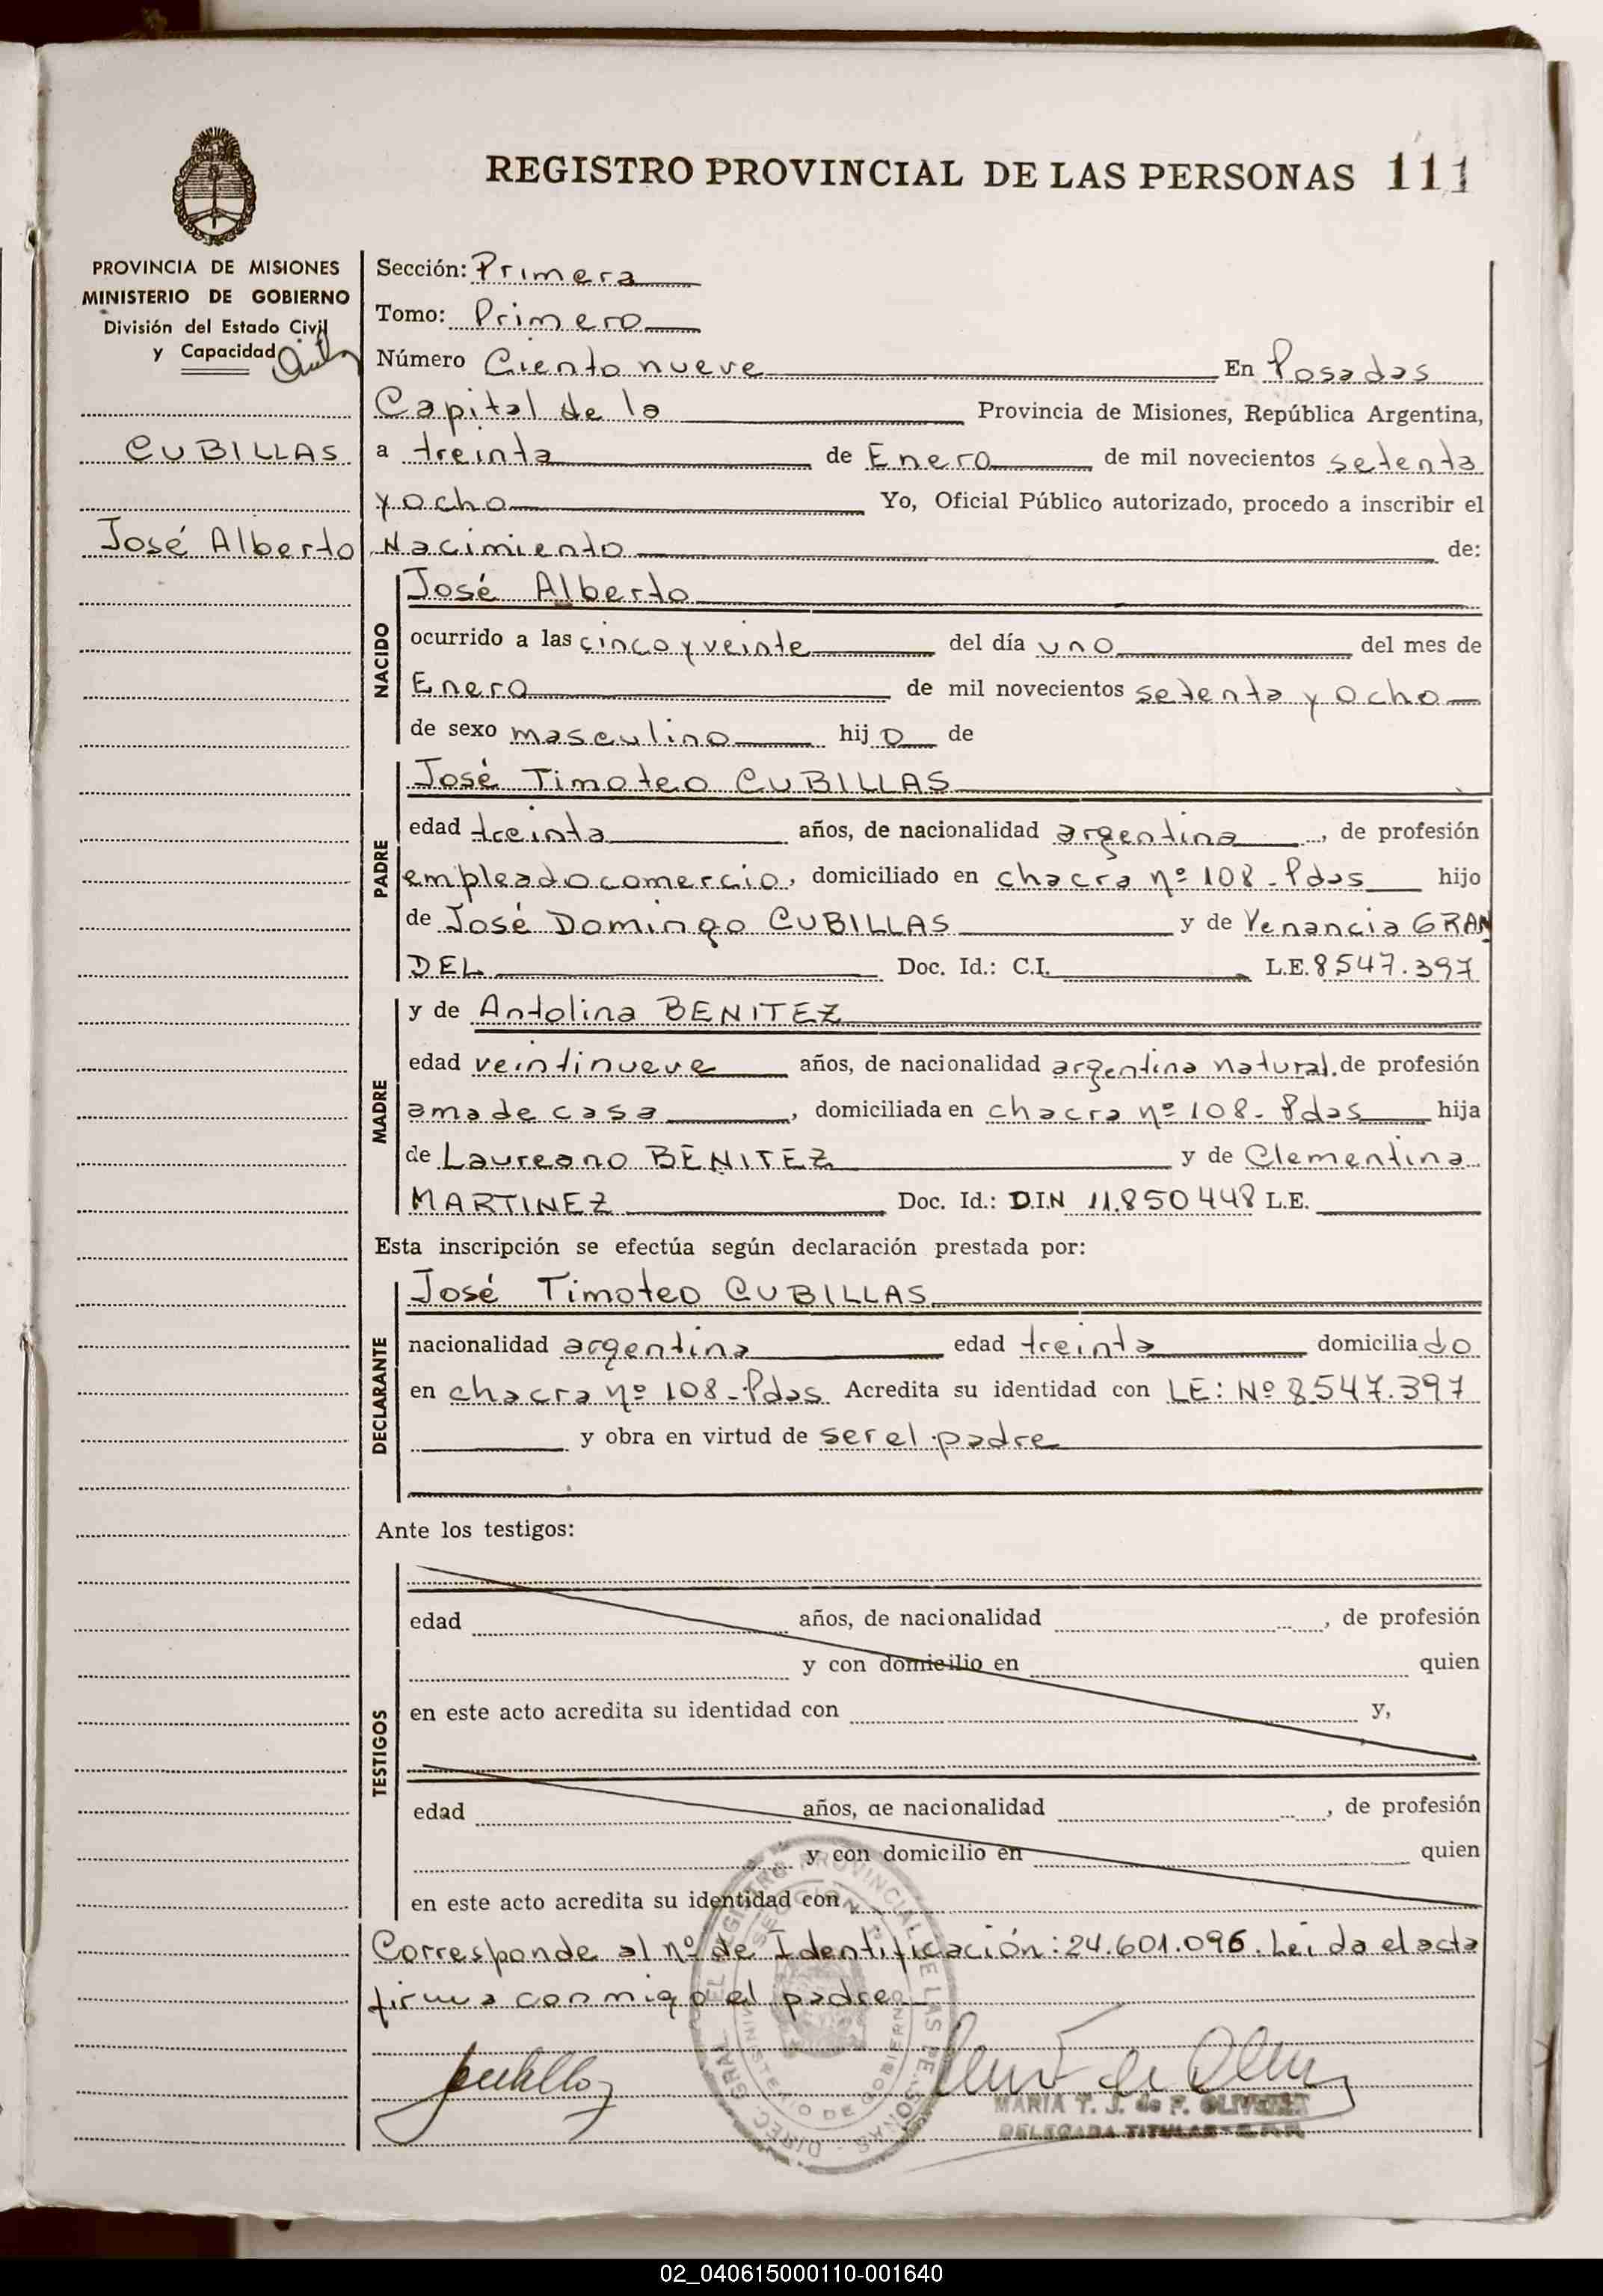 REGISTRO PROVINCIAL DE LAS PERSONAS 111
PROVINCIA DE MISIONES
MINISTERIO DE GOBIERNO
División del Estado Civil
y Capacidad
CUBILLAS
José Alberto
Sección: Primera
Tomo: Primero
Número Ciento nueve En Posadas
Capital de la Provincia de Misiones, República Argentina,
a treinta de Enero de mil novecientos setenta
y ocho Yo, Oficial Público autorizado, procedo a inscribir el
Nacimiento de:
NACIDO
José Alberto
ocurrido a las cinco y veinte del día uno del mes de
Enero de mil novecientos setenta y ocho
de sexo masculino hijo de
PADRE
José Timoteo CUBILLAS
edad treinta años, de nacionalidad argentina, de profesión
empleado comercio, domiciliado en chacra nº 108 - Pdas hijo
de José Domingo CUBILLAS y de Venancia GRAN
DEL Doc. Id.: C.I. L.E. 8547.397
MADRE
y de Antolina BENITEZ
edad veintinueve años, de nacionalidad argentina natural, de profesión
ama de casa, domiciliada en chacra nº 108 - Pdas hija
de Laureano BENITEZ y de Clementina
MARTINEZ Doc. Id.: D.I.N 11.850448 L.E.
Esta inscripción se efectúa según declaración prestada por:
DECLARANTE
José Timoteo CUBILLAS
nacionalidad argentina edad treinta domiciliado
en chacra nº 108 - Pdas Acredita su identidad con LE: Nº 8.547.397
y obra en virtud de ser el padre
Ante los testigos:
TESTIGOS
edad años, de nacionalidad , de profesión
y con domicilio en quien
en este acto acredita su identidad con y,
edad años, de nacionalidad , de profesión
y con domicilio en quien
en este acto acredita su identidad con
Corresponde al nº de Identificación: 24.601.096. Leida el acta
firma conmigo el padre
DIREC. GRAL. DEL REGISTRO PROVINCIAL DE LAS PERSONAS
MINISTERIO DE GOBIERNO
MARIA T. J. de F. OLIVERA
DELEGADA TITULAR
02_040615000110-001640